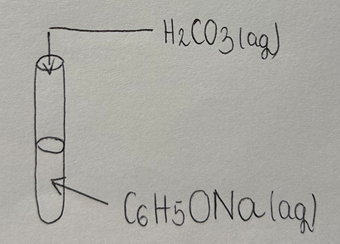 H2CO3(aq)
C6H5ONa(aq)